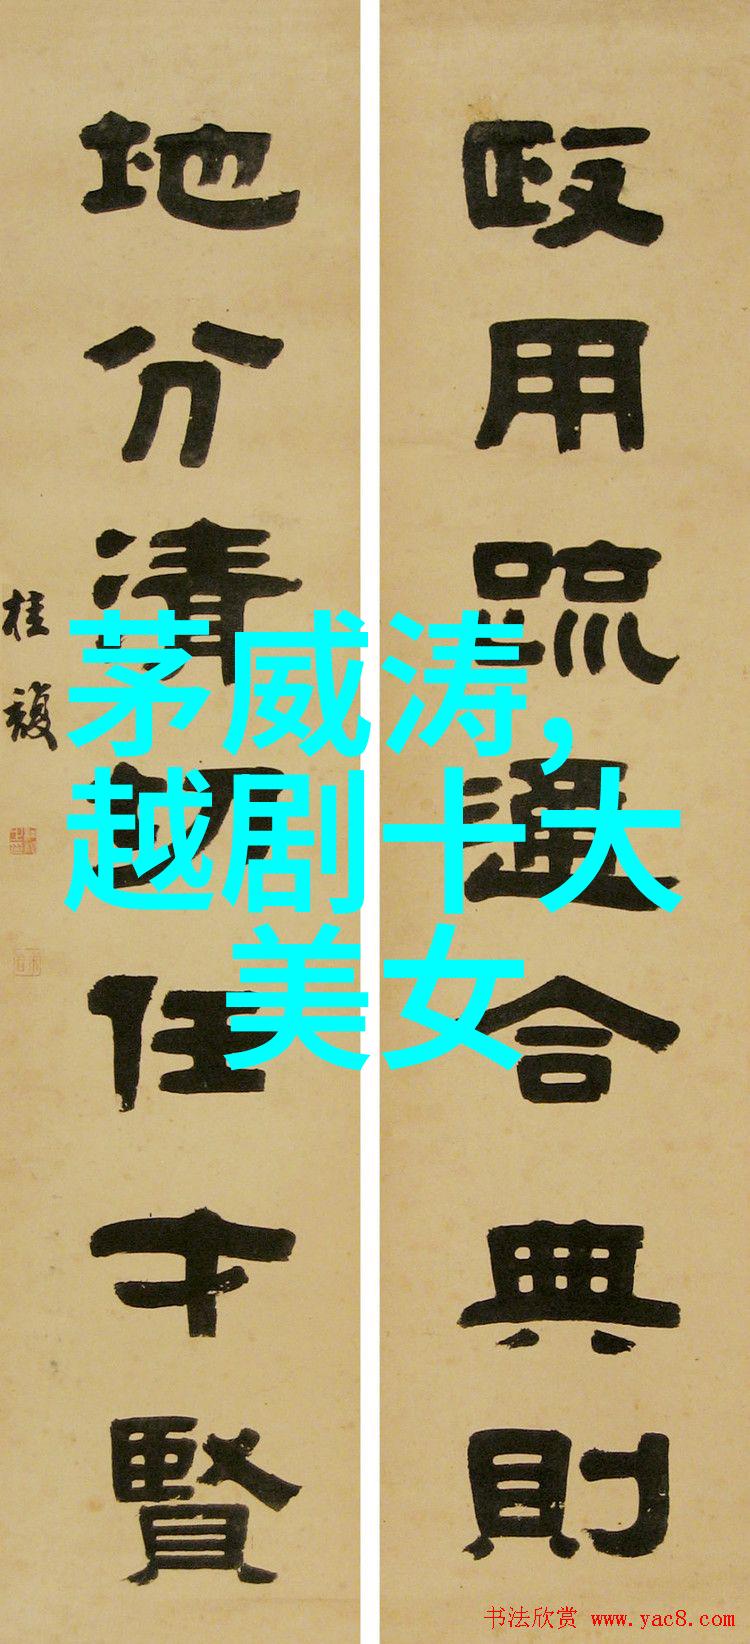 政用疏通合典則
地分清切任才賢
桂馥
茅威涛,
越剧十大
美女
书法欣赏 www.yac8.com